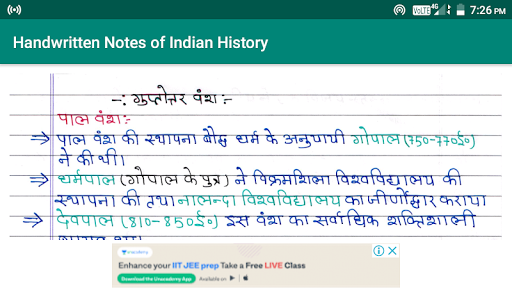 VoLTE 4G 7:26 PM
Handwritten Notes of Indian History
-: गुप्तोत्तर वंश :-
पाल वंश:-
⇒ पाल वंश की स्थापना बौद्ध धर्म के अनुयायी गोपाल (750-770ई०)
ने की थी।
⇒ धर्मपाल (गोपाल के पुत्र) ने विक्रमशिला विश्वविद्यालय की
स्थापना की तथा नालन्दा विश्वविद्यालय का जीर्णोद्धार कराया
⇒ देवपाल (810-850ई०) इस वंश का सर्वाधिक शक्तिशाली
unacademy
Enhance your IIT JEE prep Take a Free LIVE Class
Download the Unacademy App Available on